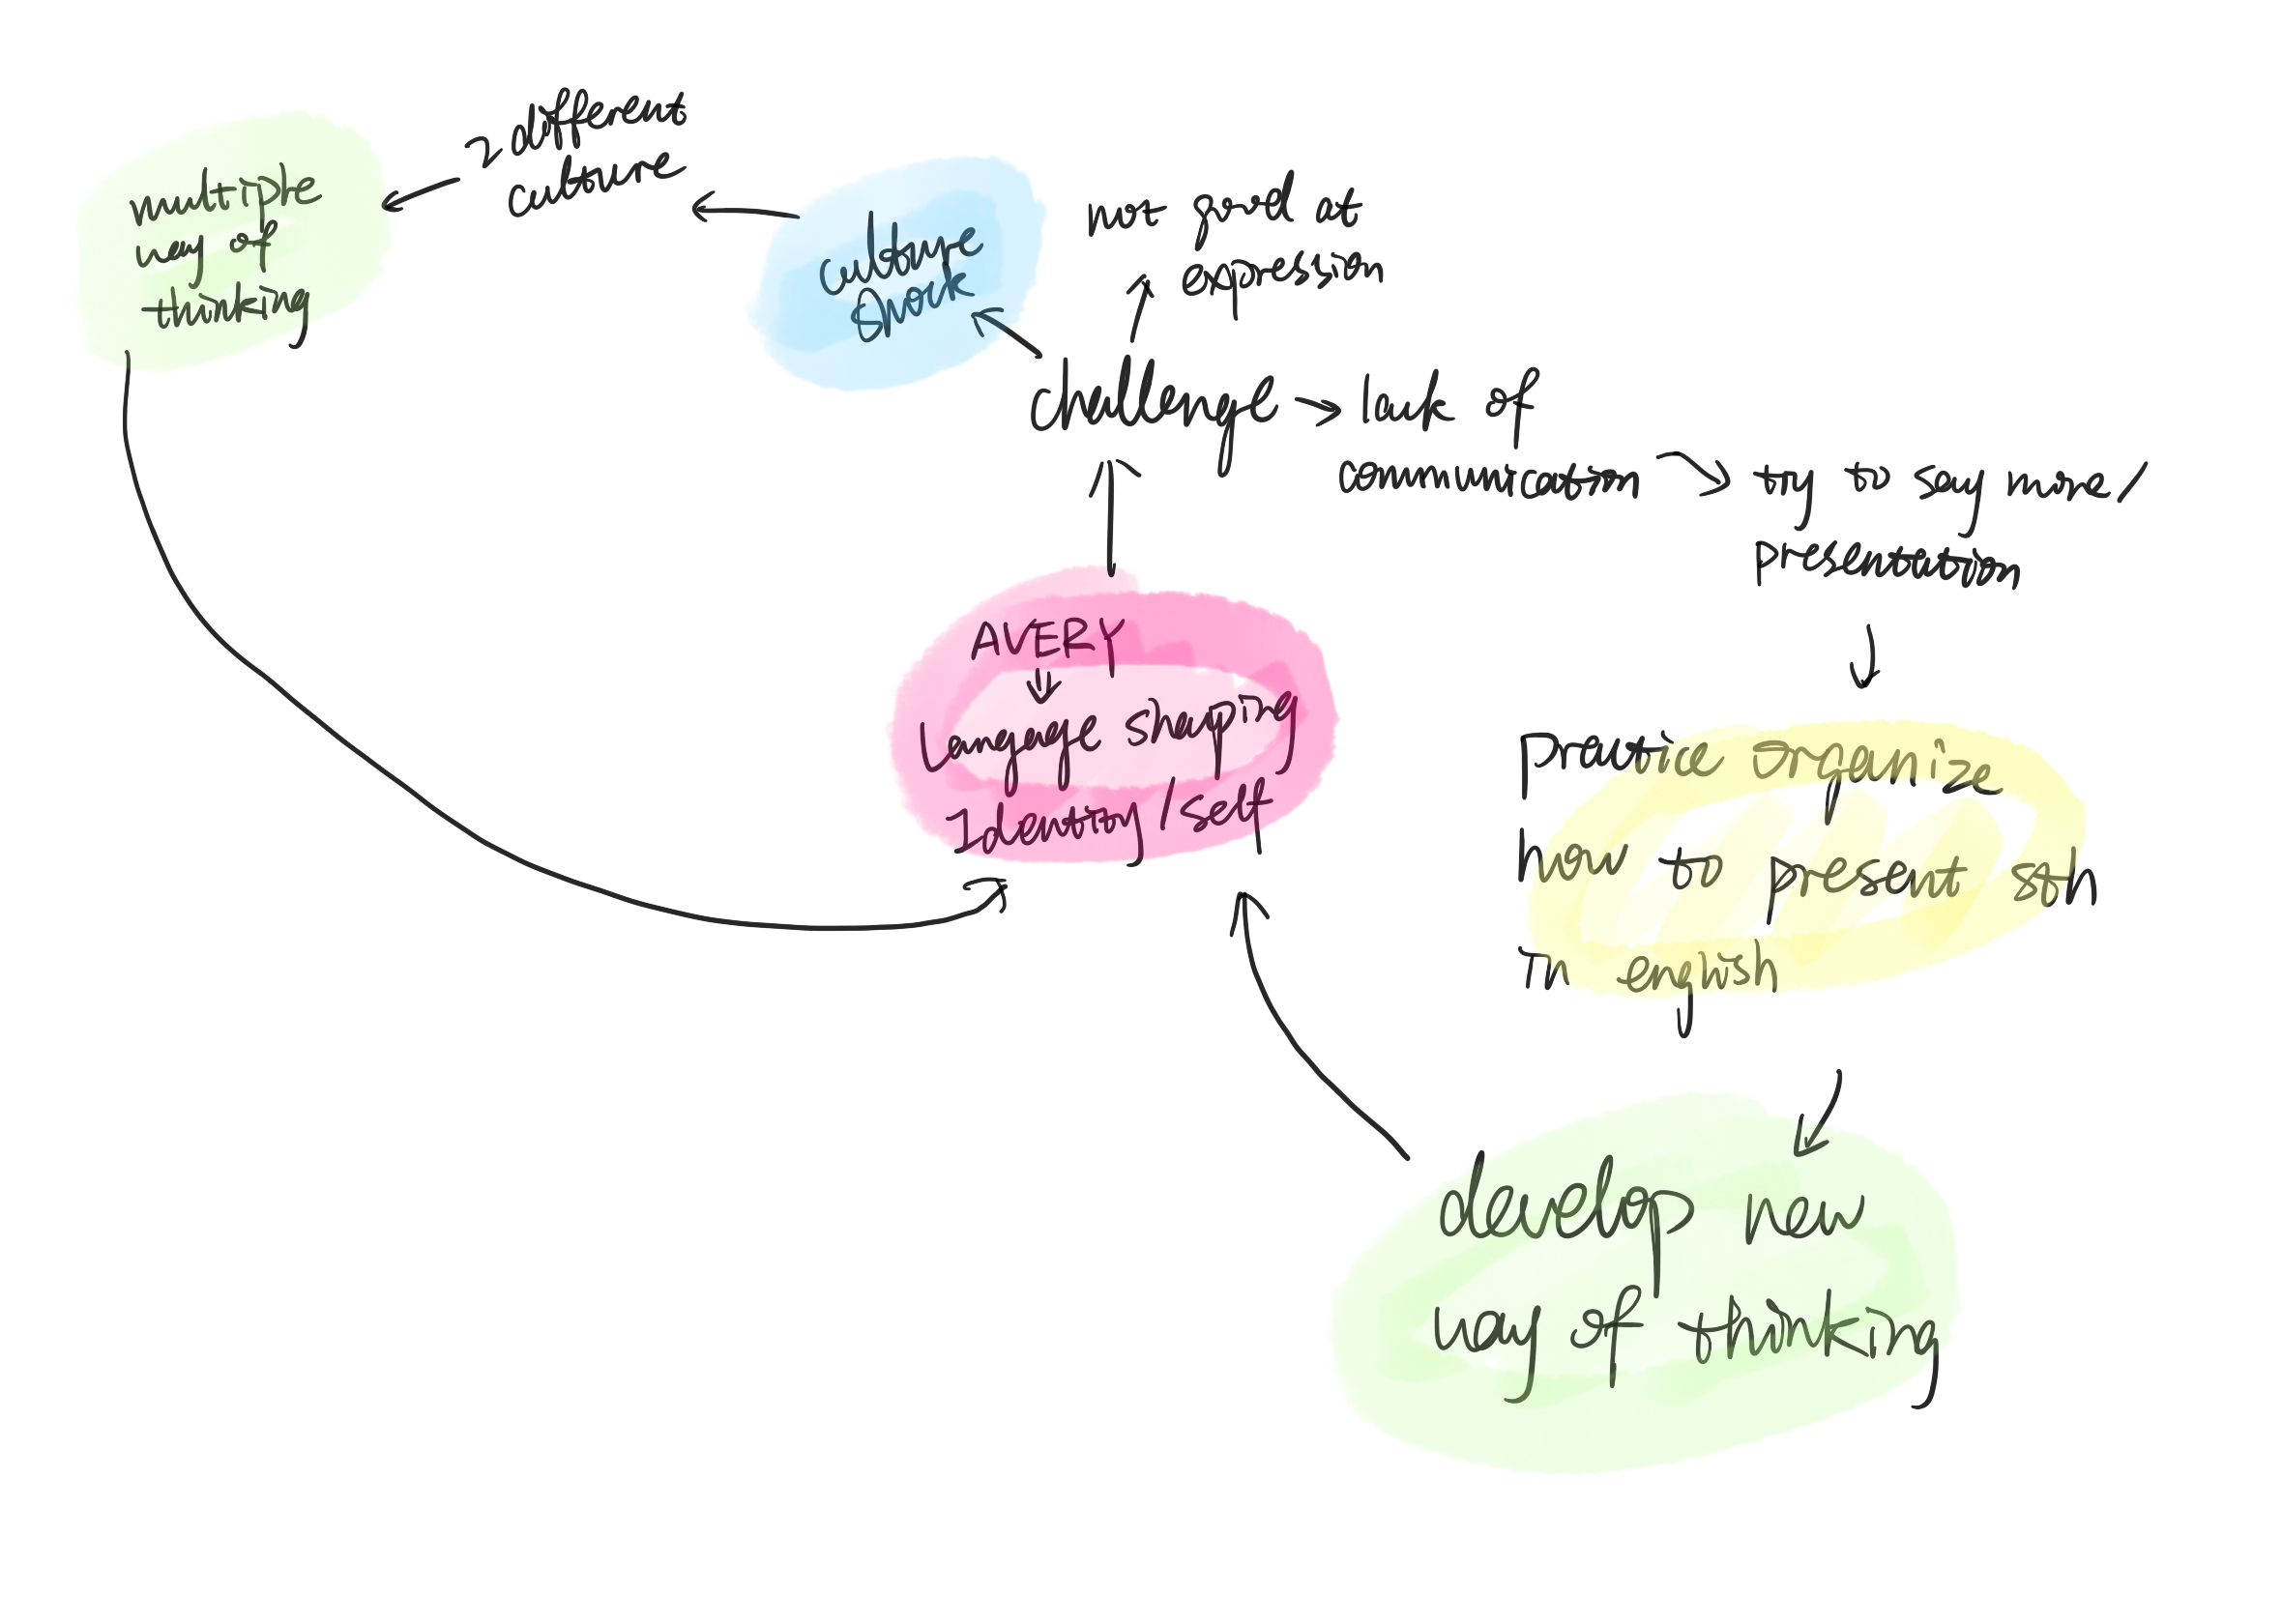 2 different
culture
multiple
way of
thinking
culture
shock
not good at
expression
challenge
lack of
communication
try to say more /
presentation
AVERY
Language shaping
Identity / self
practice organize
how to present sth
in english
develop new
way of thinking